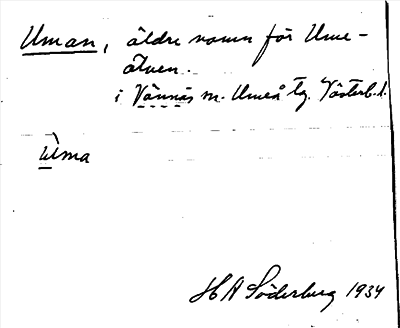 Uman, äldre namn för Ume-
älven.
i Vännäs m. Umeå tg. Västerb.l.
Ùma
H A Söderberg 1934